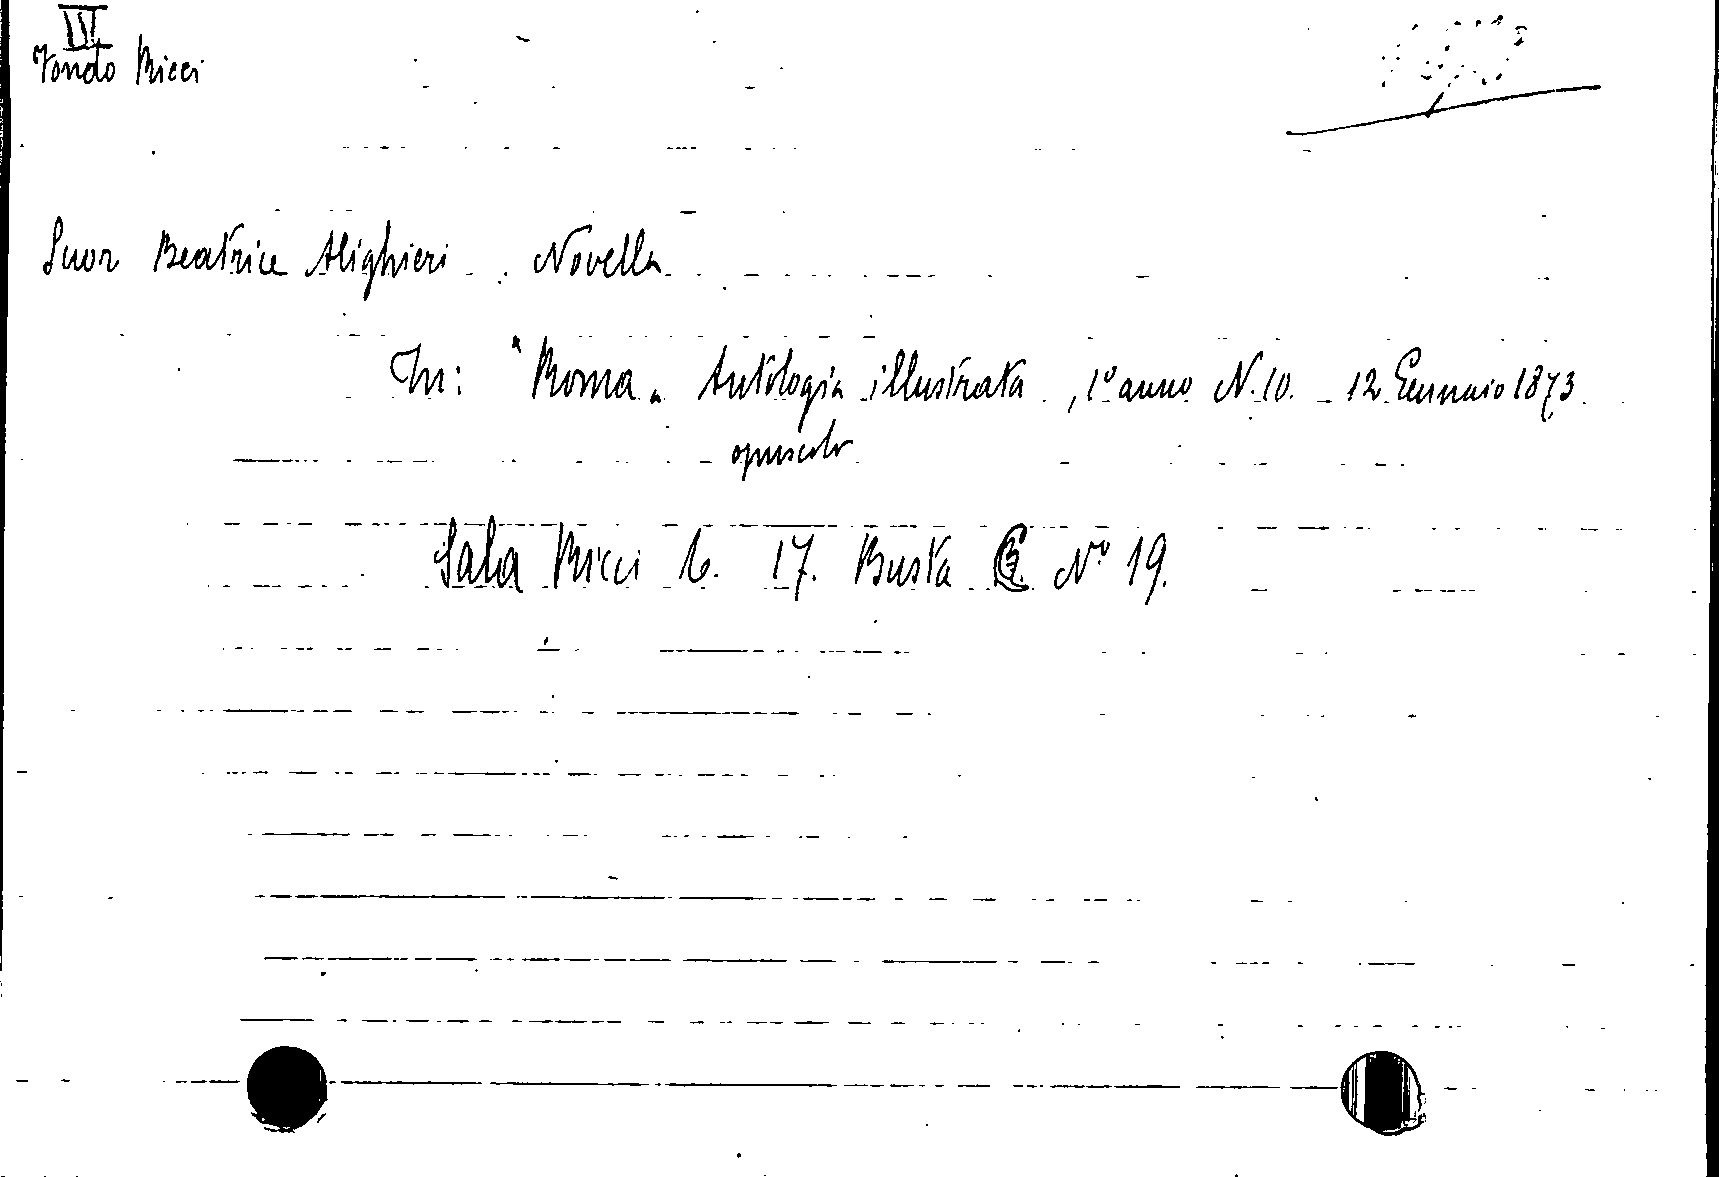 III
Fondo Ricci
Suor Beatrice Alighieri. Novella
In: "Roma" Antologia illustrata, 1º anno N. 10. - 12 Gennaio 1873
opuscolo
Sala Ricci 6. 17. Busta C. Nº 19.